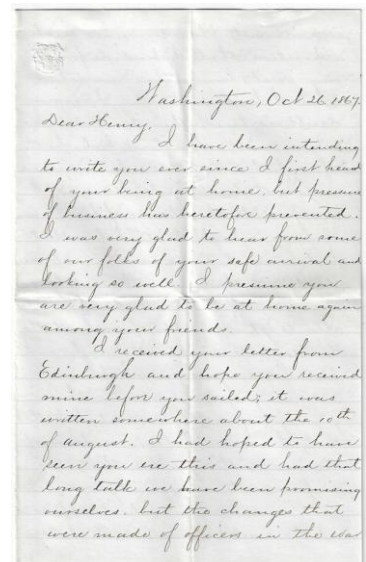 Washington, Oct 26 1867.
Dear Henry,
I have been intending
to write you ever since I first head
of your being at home, but pressure
of business has heretofore prevented.
I was very glad to hear from some
of our folks of your safe arrival and
looking so well. I presume you
are very glad to be at home again
among your friends.
I received your letter from
Edinburgh and hope you received
mine before you sailed; it was
written somewhere about the 10th
of August. I had hoped to have
seen you ere this and had that
long talk we have been promising
ourselves, but the changes that
were made of officers in the War